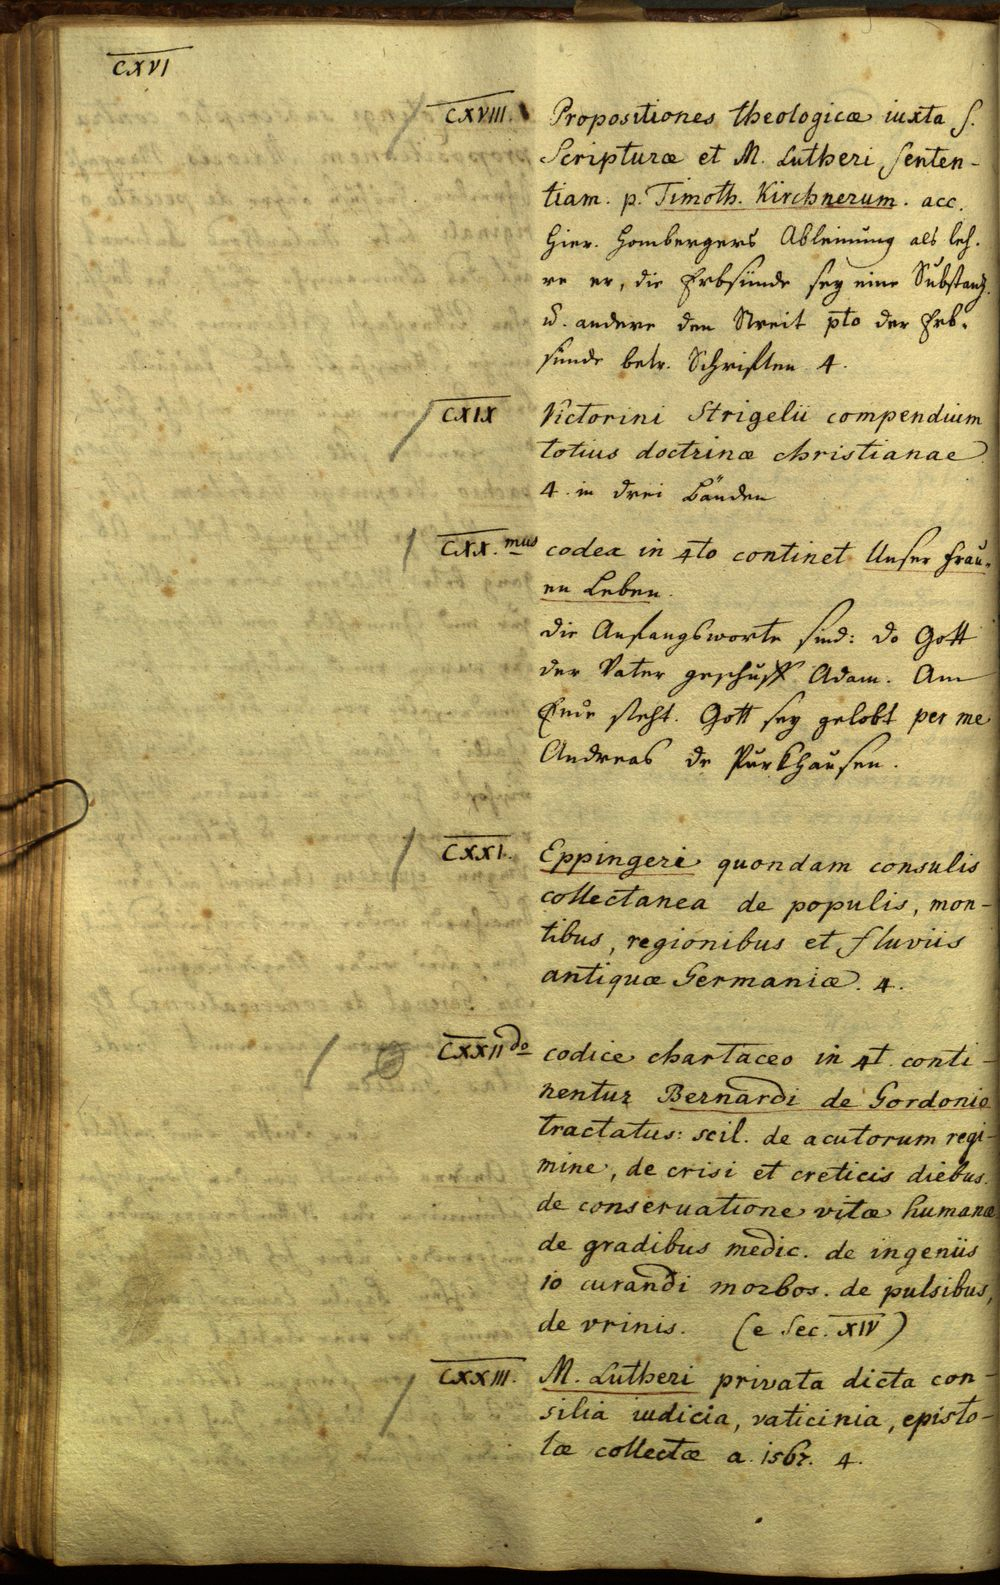 CXVI
CXVIII. Propositiones theologicæ iuxta S.
Scripturæ et M. Lutheri senten-
tiam. p. Timoth. Kirchnerum. acc.
Hier. Hombergers Ableinung als leh-
re er, die Erbsünde sey eine Substanz.
u. andere den Streit pto der Erb-
sünde betr. Schriften 4.
CXIX Victorini Strigelii compendium
totius doctrinæ christianae
4. in drei Bänden
CXX.mus codex in 4to continet Unser Frau-
en Leben.
die Anfangsworte sind: do Gott
der Vater geschuff Adam. Am
Ende steht. Gott sey gelobt per me
Andreas de Purkhausen.
CXXI. Eppingeri quondam consulis
collectanea de populis, mon-
tibus, regionibus et fluviis
antiquæ Germaniæ. 4.
CXXIIdo codice chartaceo in 4t. conti-
nentur Bernardi de Gordonio
tractatus: scil. de acutorum regi-
mine, de crisi et creticis diebus.
de conseruatione vitæ humanæ
de gradibus medic. de ingeniis
10 curandi morbos. de pulsibus,
de vrinis. (e Sec. XIV)
CXXIII. M. Lutheri privata dicta con-
silia iudicia, vaticinia, episto-
læ collectæ a. 1567. 4.